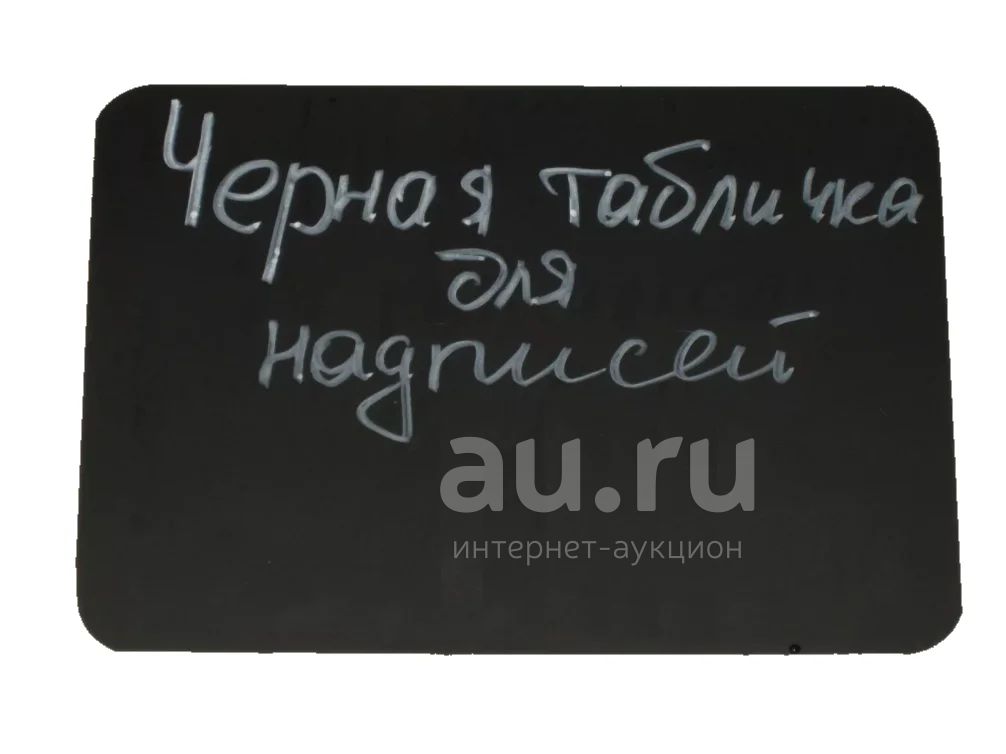 Черная табличка
для
надписей
au.ru
интернет-аукцион